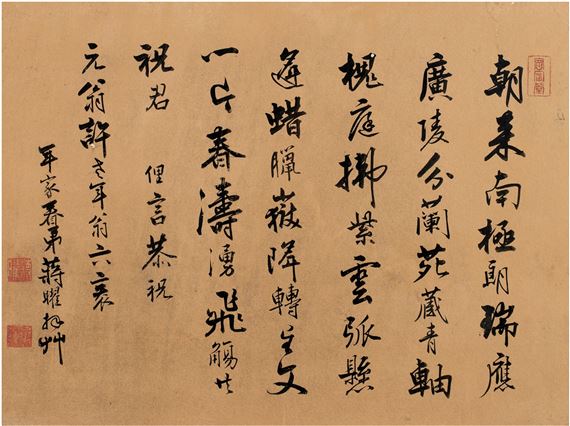 朝來南極朗瑞應
廣陵分蘭苑藏青軸
槐庭拂紫雲弧懸
蜡臘嶽降轉生文
一片春濤湧飛觴共
祝君 俚言恭祝
元翁許老年翁六袠
年家眷弟蔣曜拜艸